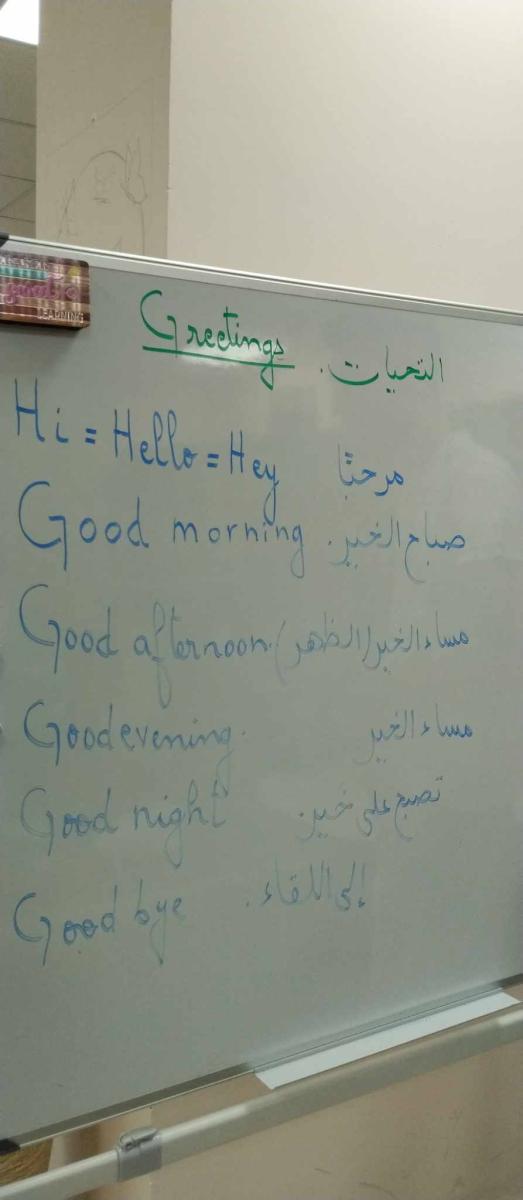 LEARNING
Greetings. التحيات
Hi = Hello = Hey مرحبًا
Good morning. صباح الخير
Good afternoon. مساء الخير (الظهر)
Good evening. مساء الخير
Good night تصبح على خير.
Good bye إلى اللقاء.